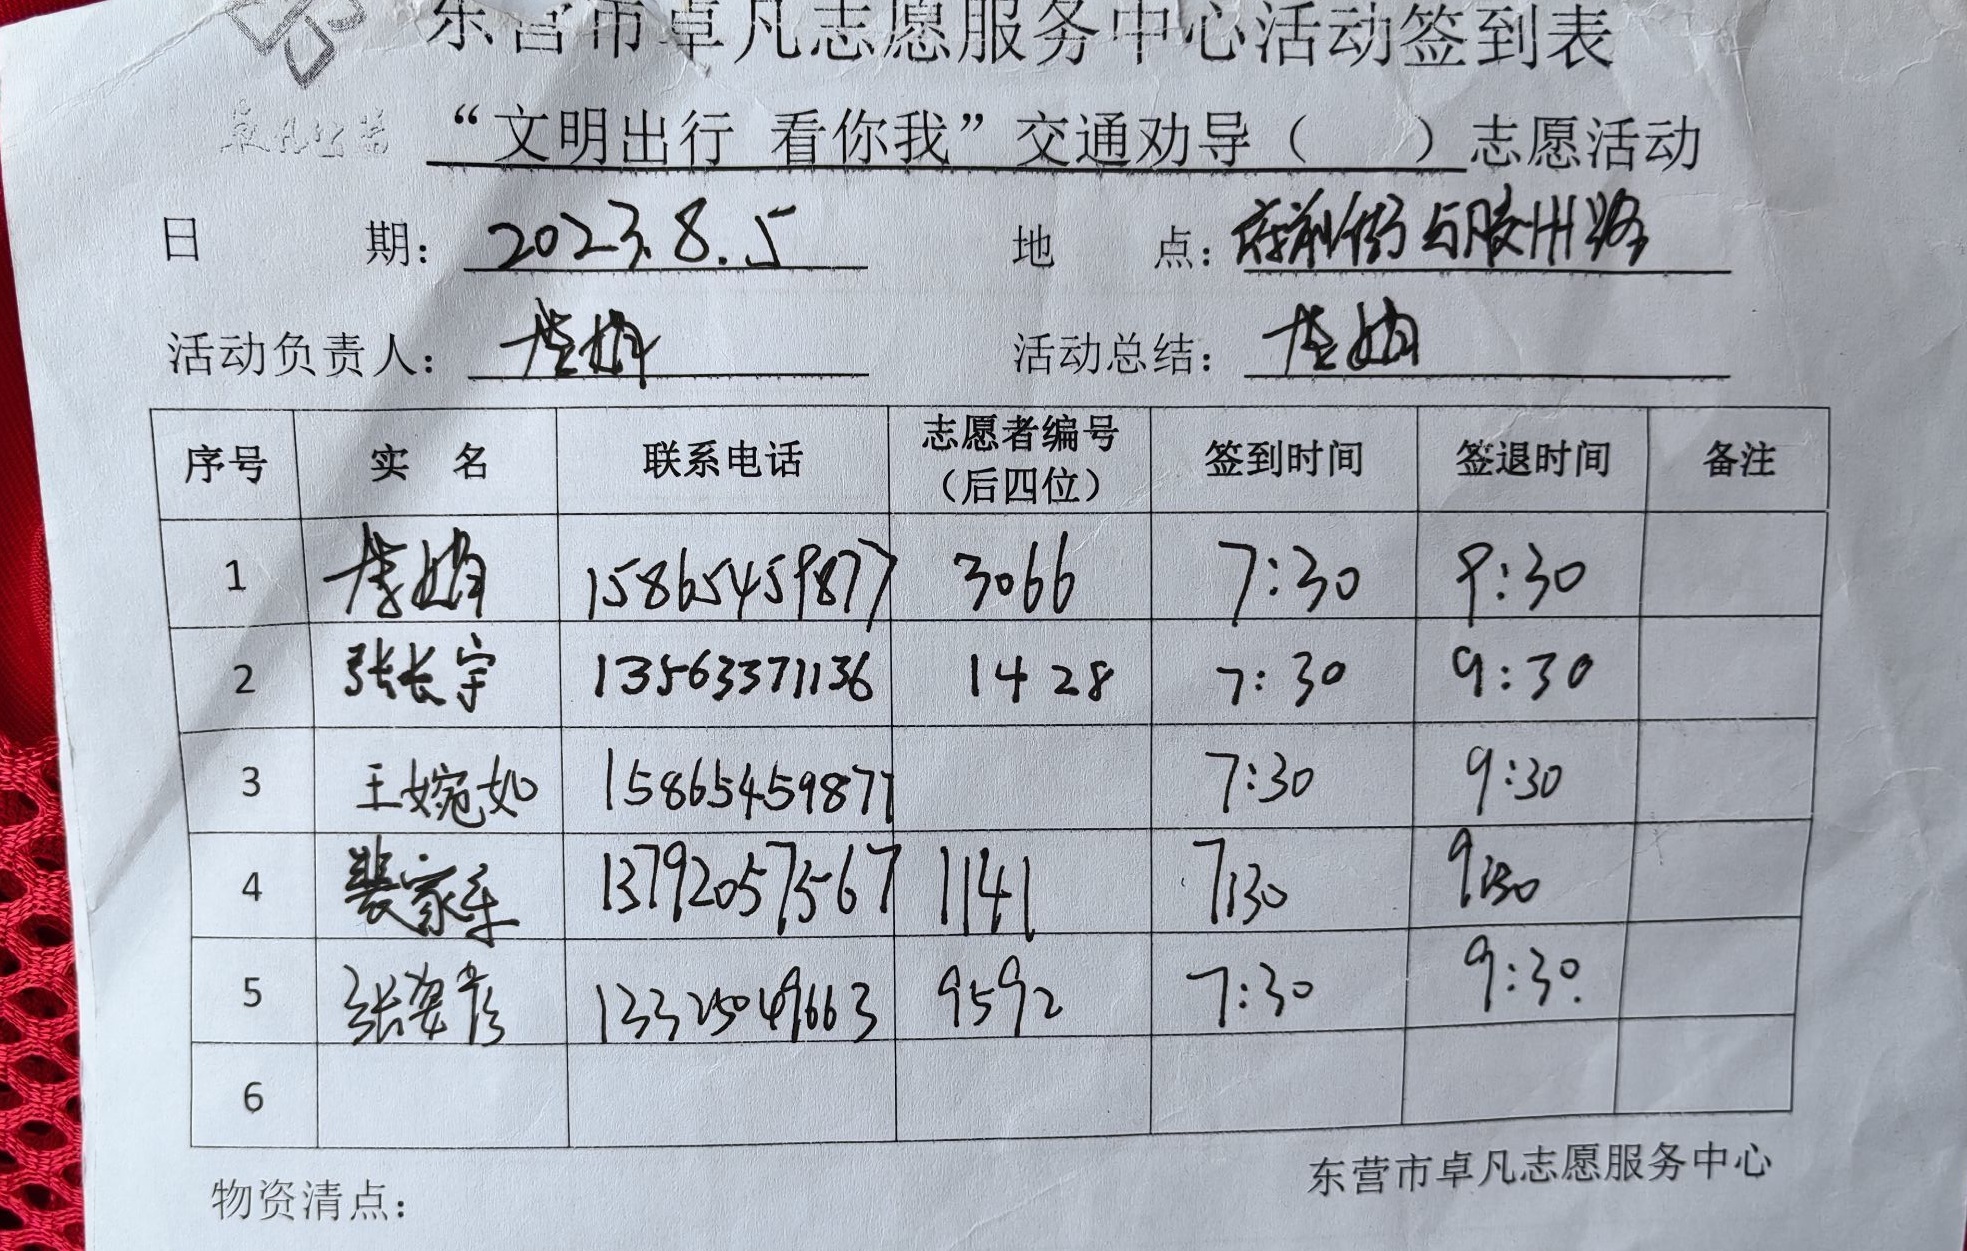 东营市卓凡志愿服务中心活动签到表
“文明出行 看你我”交通劝导（ ）志愿活动
日 期：2023.8.5 地 点：府前街与胶州路
活动负责人： 活动总结：
序号 实 名 联系电话 志愿者编号（后四位） 签到时间 签退时间 备注
1 15865459877 3066 7:30 9:30
2 张长宇 13563371136 1428 7:30 9:30
3 王婉如 15865459877 7:30 9:30
4 裴家乐 13792057567 1141 7:30 9:30
5 张姿彦 13325049663 9592 7:30 9:30
6
物资清点： 东营市卓凡志愿服务中心